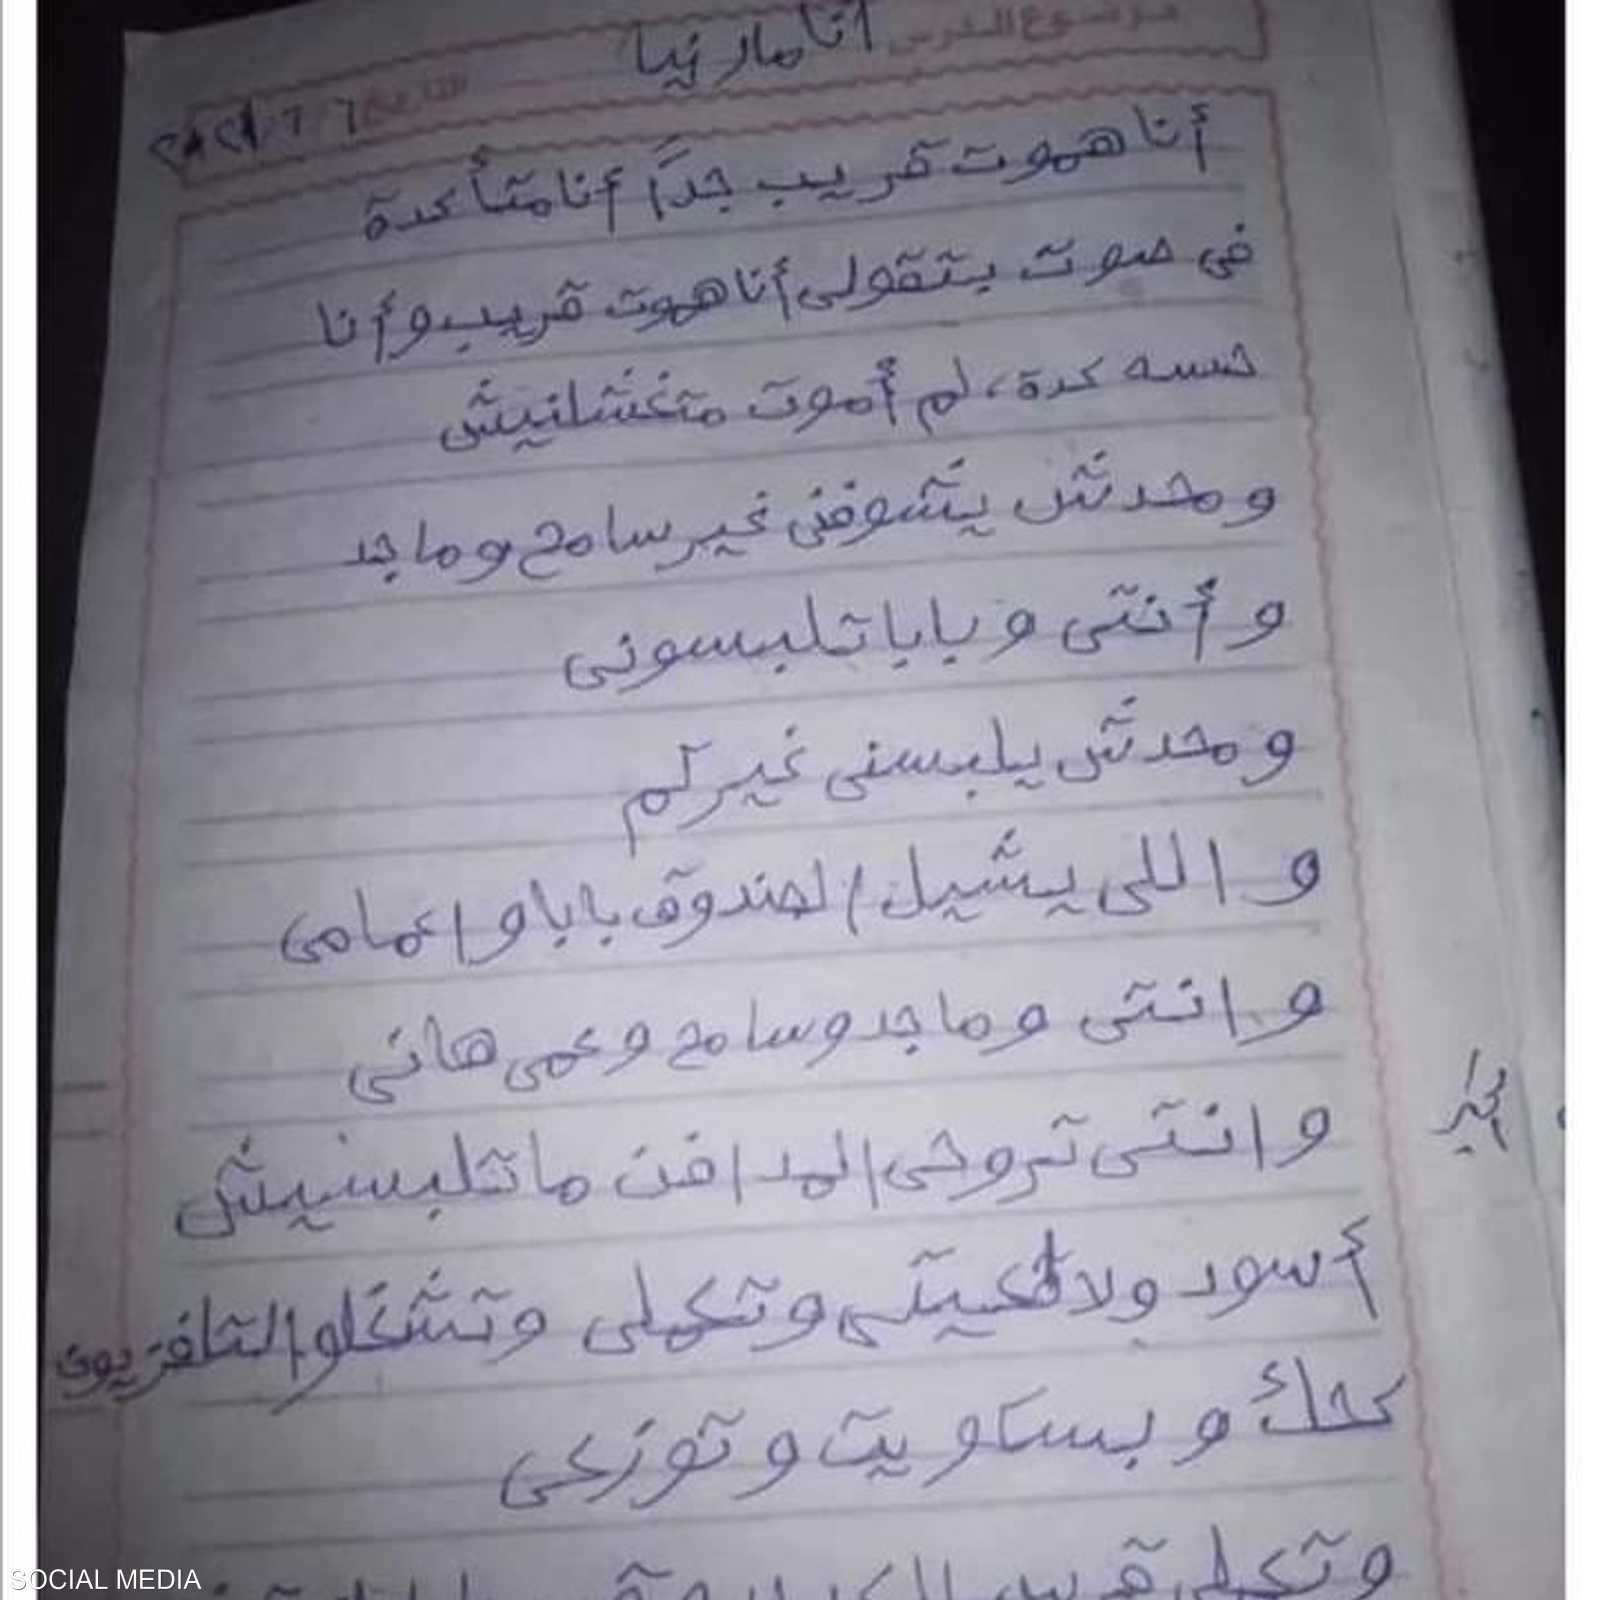 موضوع الدرس أنا مارنيا
التاريخ ٦ ٦ ٢٠٢١
أنا هموت قريب جداً أنا متأكدة
فى صوت بتقولى أنا هموت قريب وأنا
حسسه كدة، لم أموت متغسلنيش
ومحدش يشوفنى غير سامح وماجد
وأنتى وبابا تلبسونى
ومحدش يلبسنى غيركم
واللى يشيل الصندوق بابا واعمامى
وانتى وماجد وسامح وعمى هانى
وانتى تروحى المدافن ماتلبسيش
أسود ولا تعيطى وتكملى وتشغلوا التلفزيون
كحك و بسكويت و توزعى
SOCIAL MEDIA